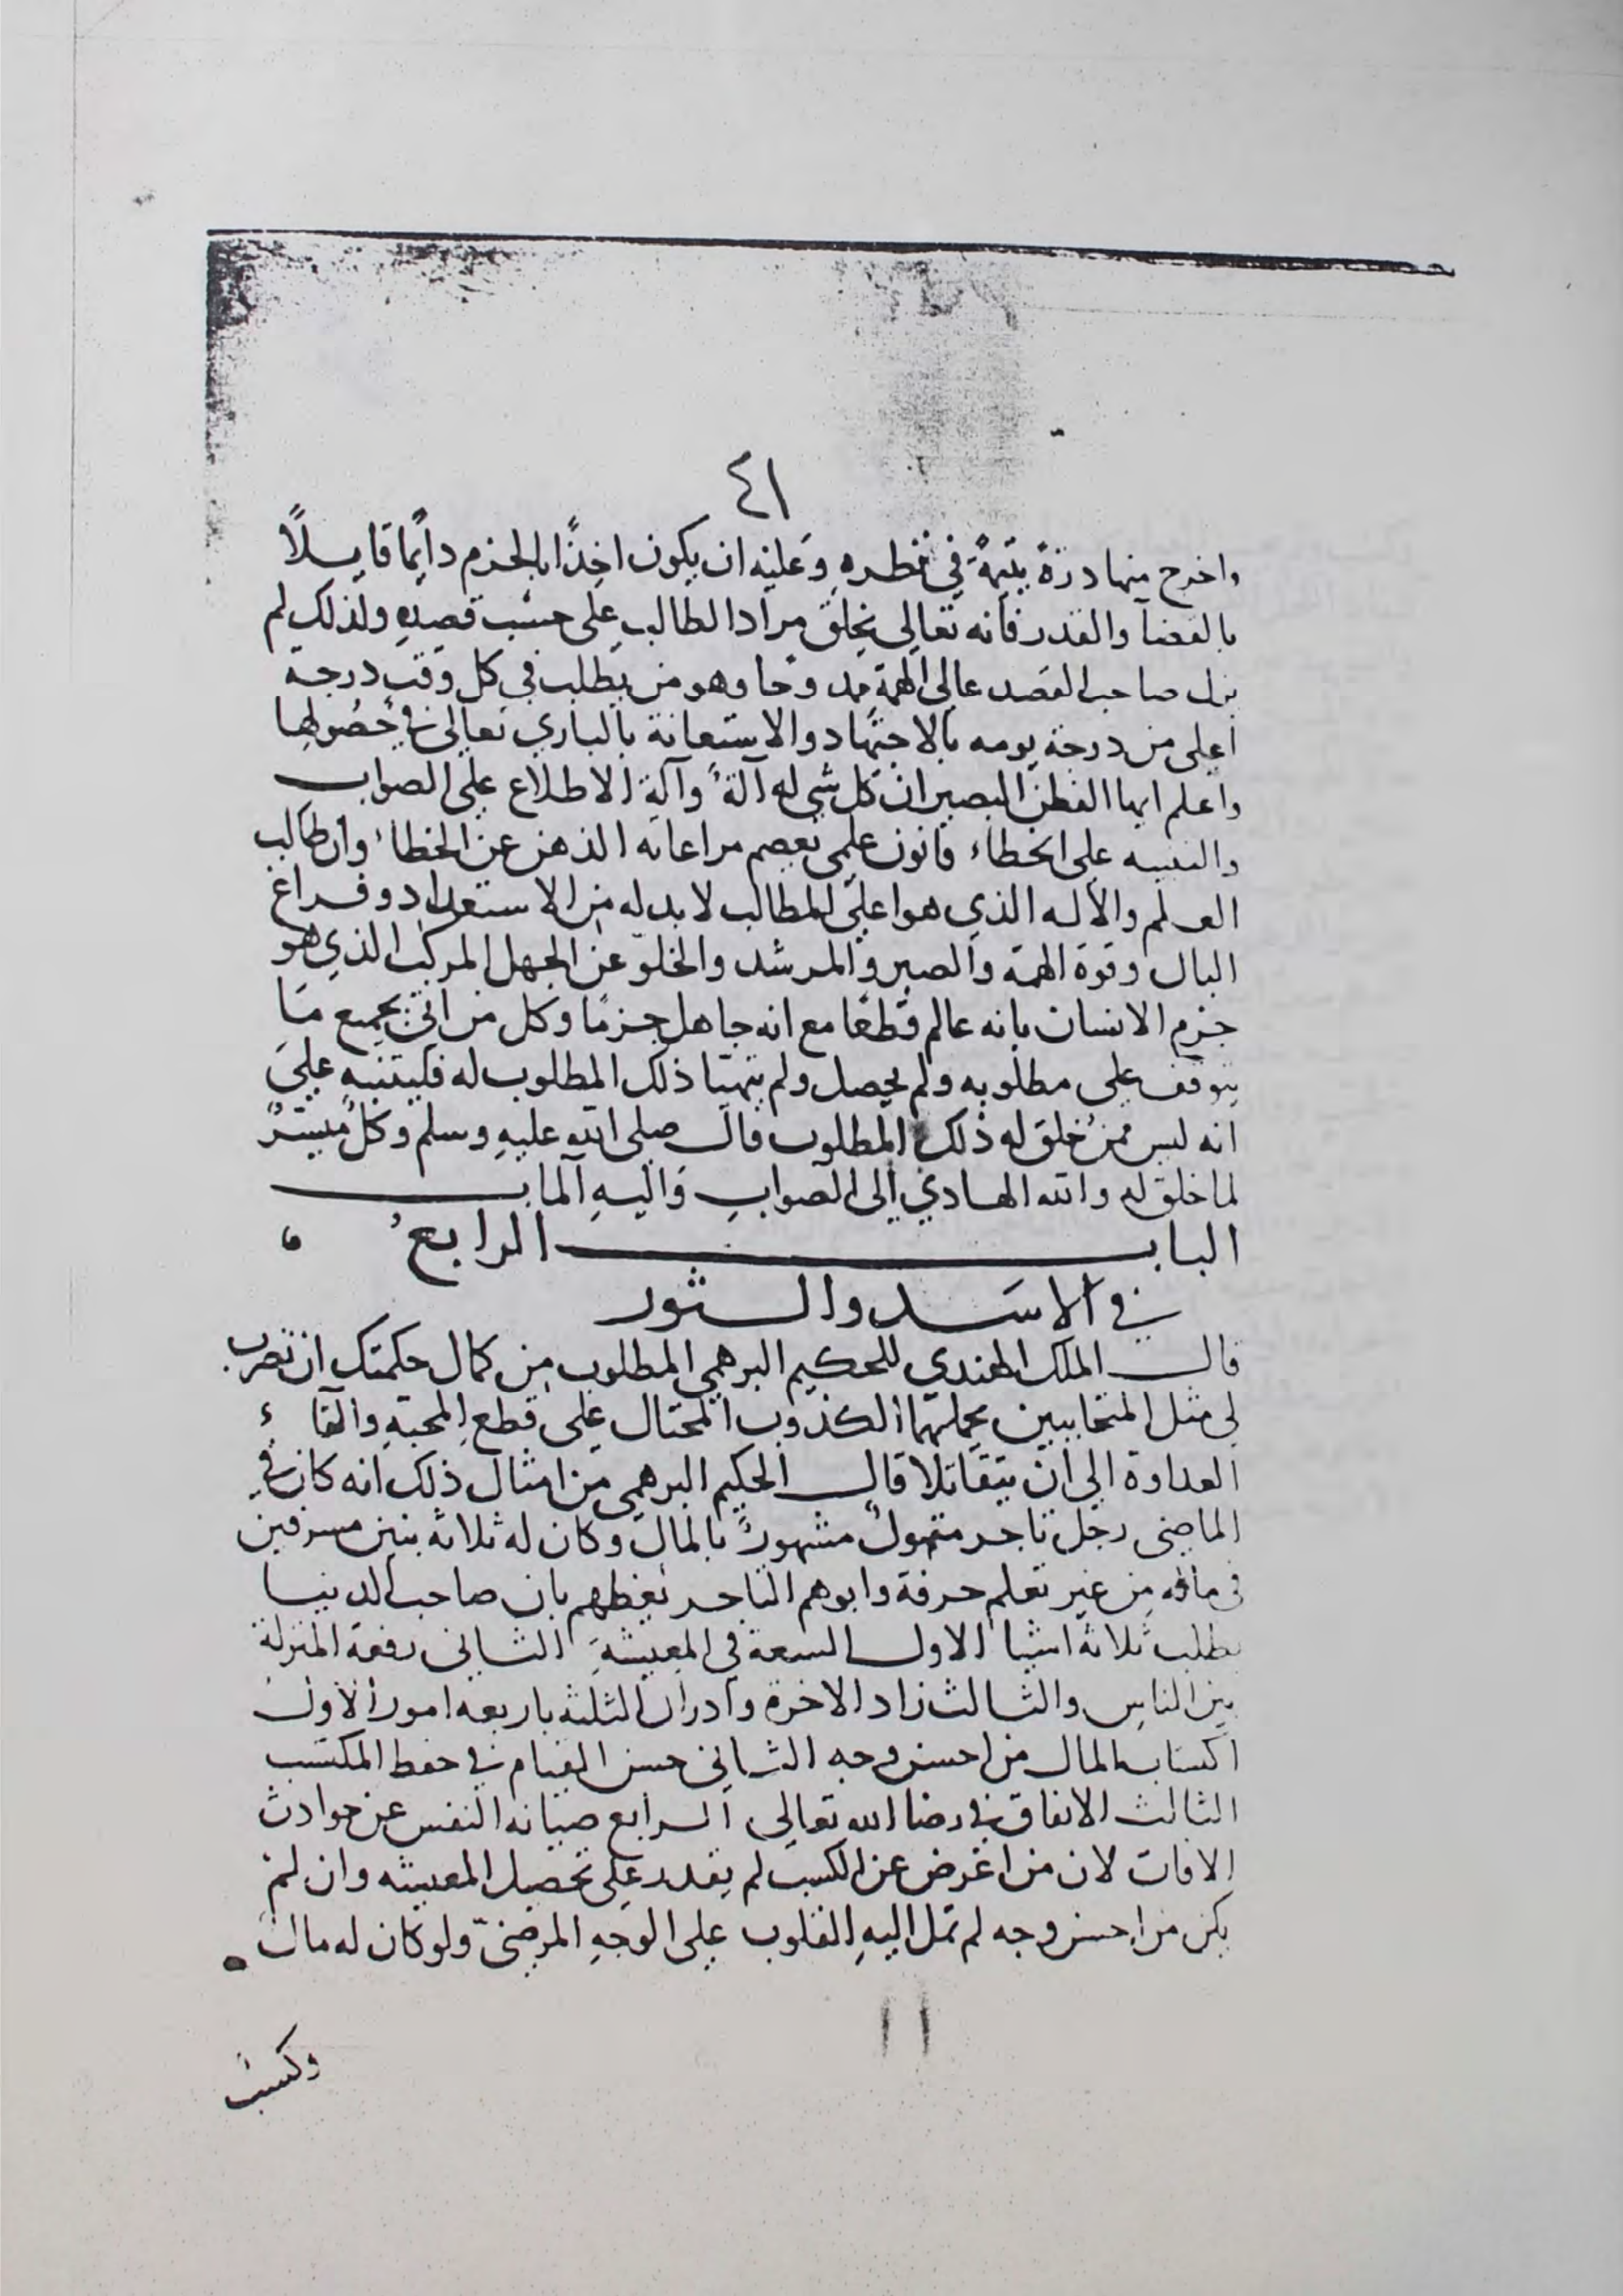 ٤١
واخرج منها درة يتيمة في قطره وعليه ان يكون اخذًا بالحزم دائما قايلًا
بالقضا والقدر فانه تعالى يخلق مراد الطالب على حسب قصده ولذلك لم
يزل صاحب القصد عالى الهمة ممدوحا وهو من يطلب في كل وقت درجة
اعلى من درجة يومه بالاجتهاد والاستعانة بالباري تعالى في حصولها
واعلم ايها الفطن البصير ان كل شي له آلة وآلة الاطلاع على الصواب
والتنبيه على الخطاء قانون علمي تعصم مراعاته الذهن عن الخطاء وان طالب
العلم والاله الذي هو اعلى المطالب لا بد له من الاستعداد وفراغ
البال وقوة الهمة والصبر والمرشد والخلو عن الجهل المركب الذي هو
جزم الانسان بانه عالم قطعًا مع انه جاهل جزمًا وكل من اتى بجميع ما
يتوقف على مطلوبه ولم يحصل ولم يتهيا ذلك المطلوب له فليتنبه على
انه ليس ممن خلق له ذلك المطلوب قال صلى الله عليه وسلم وكل ميسر
لما خلق له والله الهادي الى الصواب واليه المآب
الباب الرابع
في الاسد والثور
قال الملك الهندي للحكيم البرهمي المطلوب من كمال حكمتك ان تضرب
لى مثل المتحابيين يحملهما الكذوب المحتال على قطع المحبة والقاء
العداوة الى ان يتقاتلا قال الحكيم البرهمي من امثال ذلك انه كان في
الماضى رجل تاجر متمول مشهور بالمال وكان له ثلاثة بنين مسرفين
في ماله من غير تعلم حرفة وابوهم التاجر يعظهم بان صاحب الدنيا
يطلب ثلاثة اشيا الاول السعة في المعيشة الثانى رفعة المنزلة
بين الناس والثالث زاد الاخرة وادراك الثلثة باربعه امور الاول
اكتساب المال من احسن وجه الثاني حسن القيام في حفظ المكتسب
الثالث الانفاق في رضا الله تعالى الرابع صيانة النفس عن حوادث
الافات لان من اعرض عن الكسب لم يقدر على تحصيل المعيشه وان لم
يكن من احسن وجه لم تمل اليه القلوب على الوجه المرضيّ ولو كان له مال
١١
وكسب